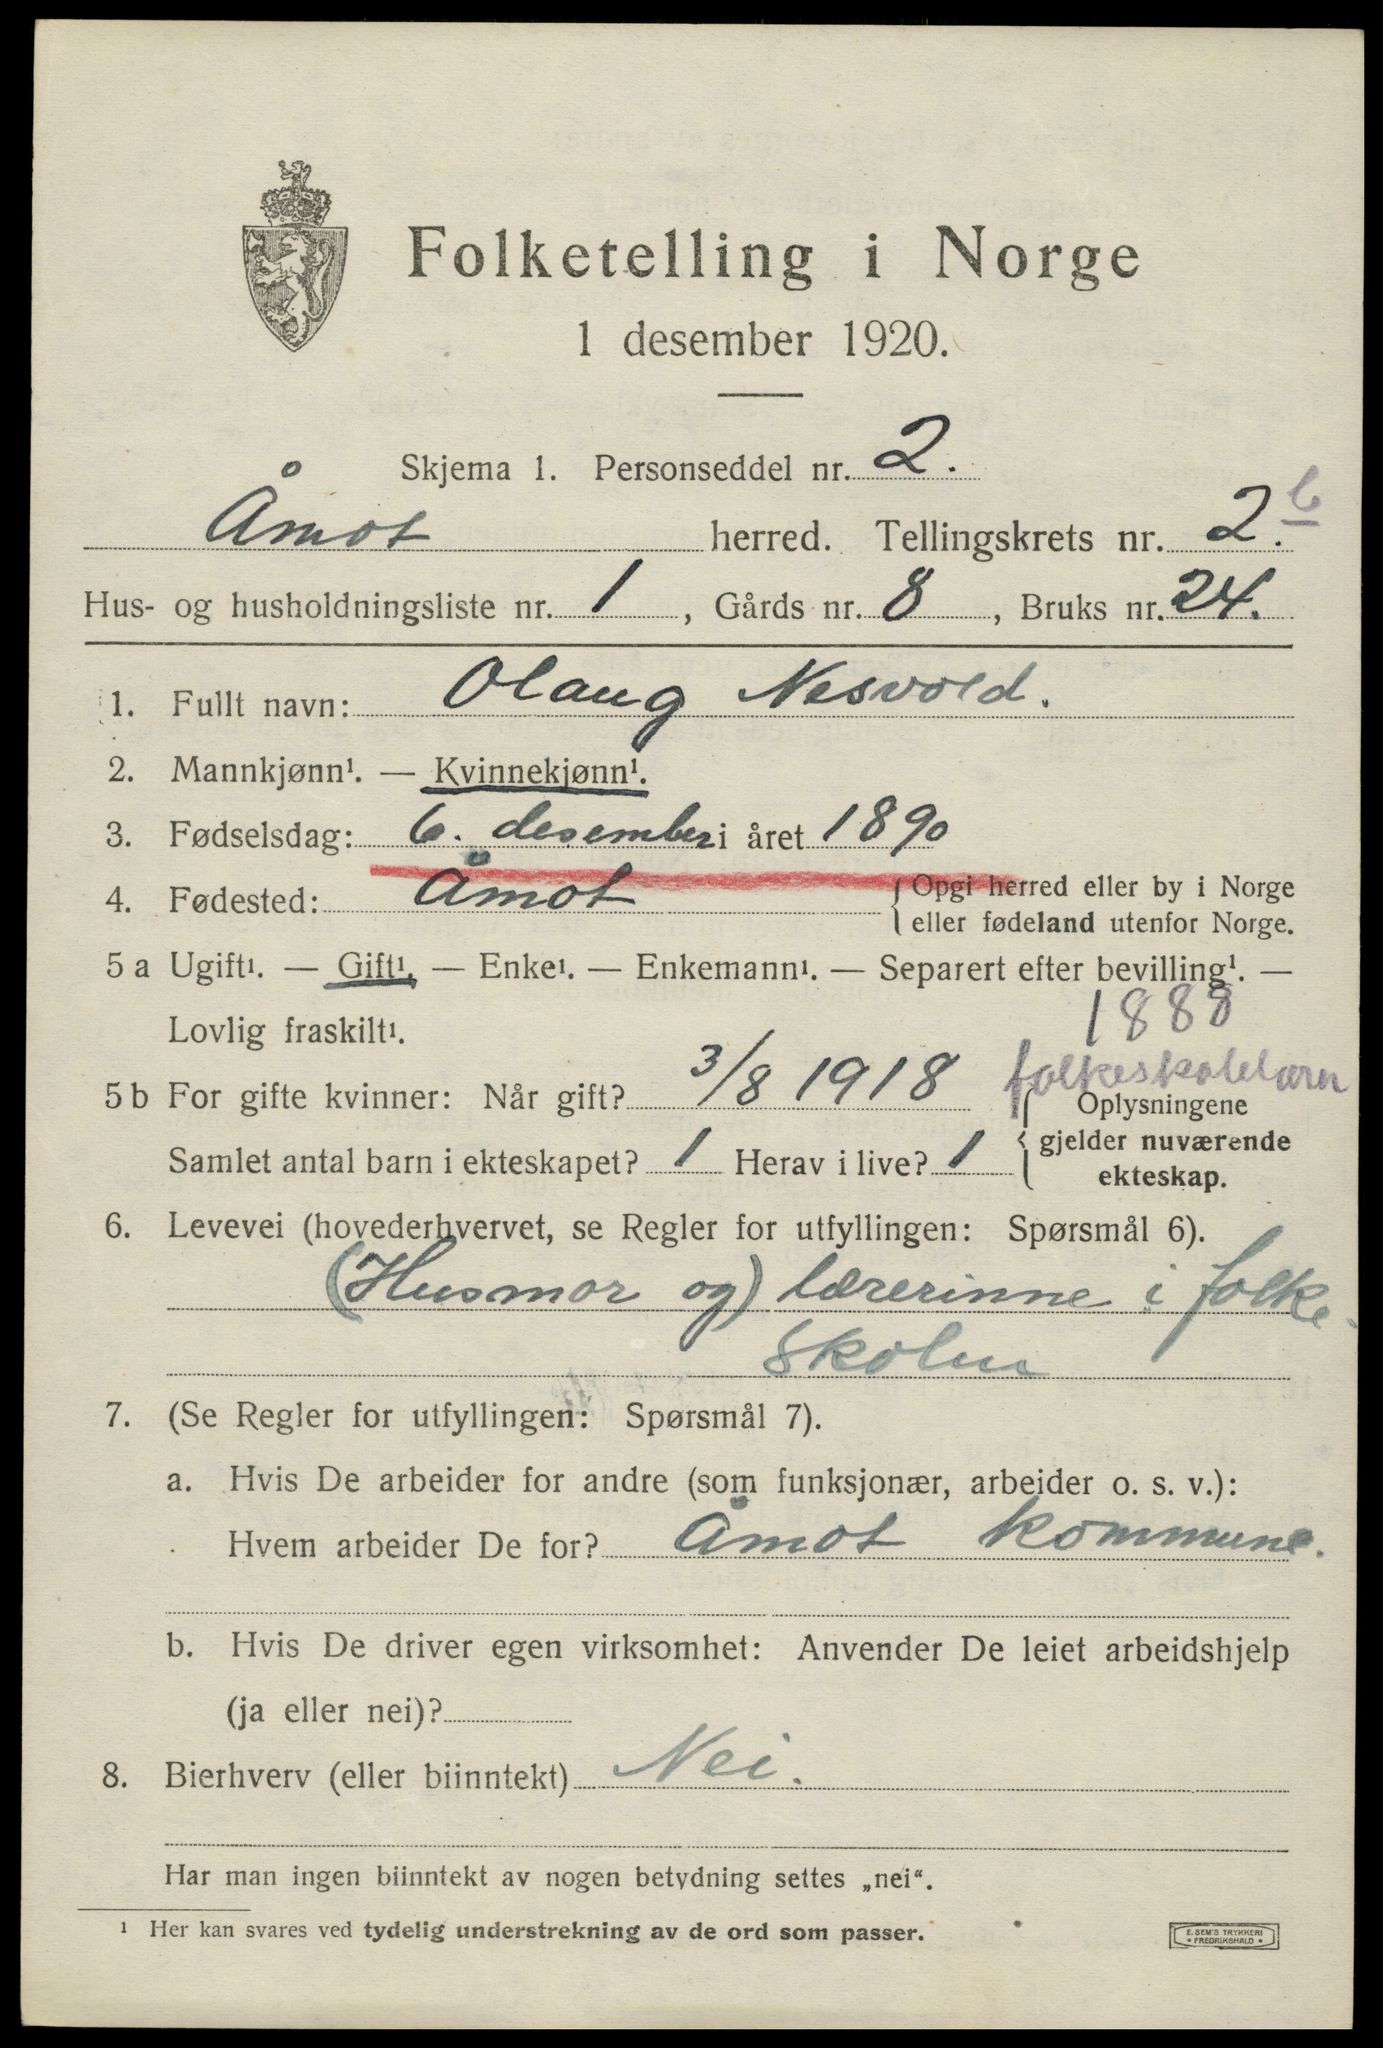 Folketelling i Norge
1 desember 1920.
Skjema 1. Personseddel nr. 2.
Åmot herred. Tellingskrets nr. 2. b
Hus- og husholdningsliste nr. 1, Gårds nr. 8, Bruks nr. 24.
1. Fullt navn: Olaug Nesvold.
2. Mannkjønn¹. — Kvinnekjønn¹.
3. Fødselsdag: 6. desember i året 1890
4. Fødested: Åmot { Opgi herred eller by i Norge
eller fødeland utenfor Norge.
5 a Ugift¹. — Gift¹. — Enke¹. — Enkemann¹. — Separert efter bevilling¹. —
Lovlig fraskilt¹. 1888
folkeskolelærer
5 b For gifte kvinner: Når gift? 3/8 1918 { Oplysningene
gjelder nuværende
ekteskap.
Samlet antal barn i ekteskapet? 1 Herav i live? 1
6. Levevei (hovederhvervet, se Regler for utfyllingen: Spørsmål 6).
(Husmor og) lærerinne i folke-
skolen
7. (Se Regler for utfyllingen: Spørsmål 7).
a. Hvis De arbeider for andre (som funksjonær, arbeider o. s. v.):
Hvem arbeider De for? Åmot kommune.
b. Hvis De driver egen virksomhet: Anvender De leiet arbeidshjelp
(ja eller nei)?
8. Bierhverv (eller biinntekt) Nei.
Har man ingen biinntekt av nogen betydning settes „nei“.
¹ Her kan svares ved tydelig understrekning av de ord som passer.
E. SEM'S TRYKKERI
• FREDRIKSHALD •